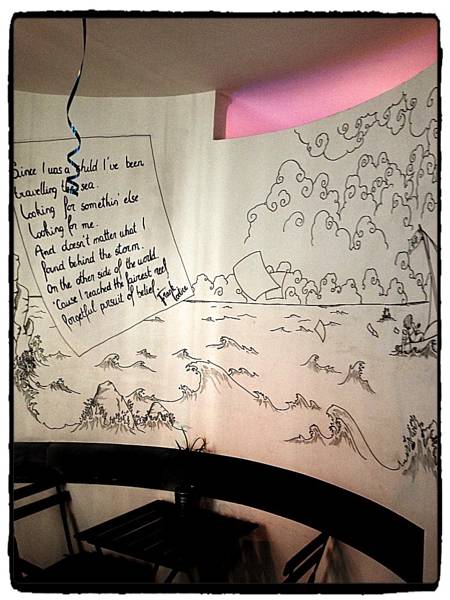 Since I was a child I've been
travelling the sea.
Looking for somethin' else
Looking for me.
And doesn't matter what I
found behind the storm.
On the other side of the world
'Cause I reached the fairest reef
Forgetful pursuit of belief